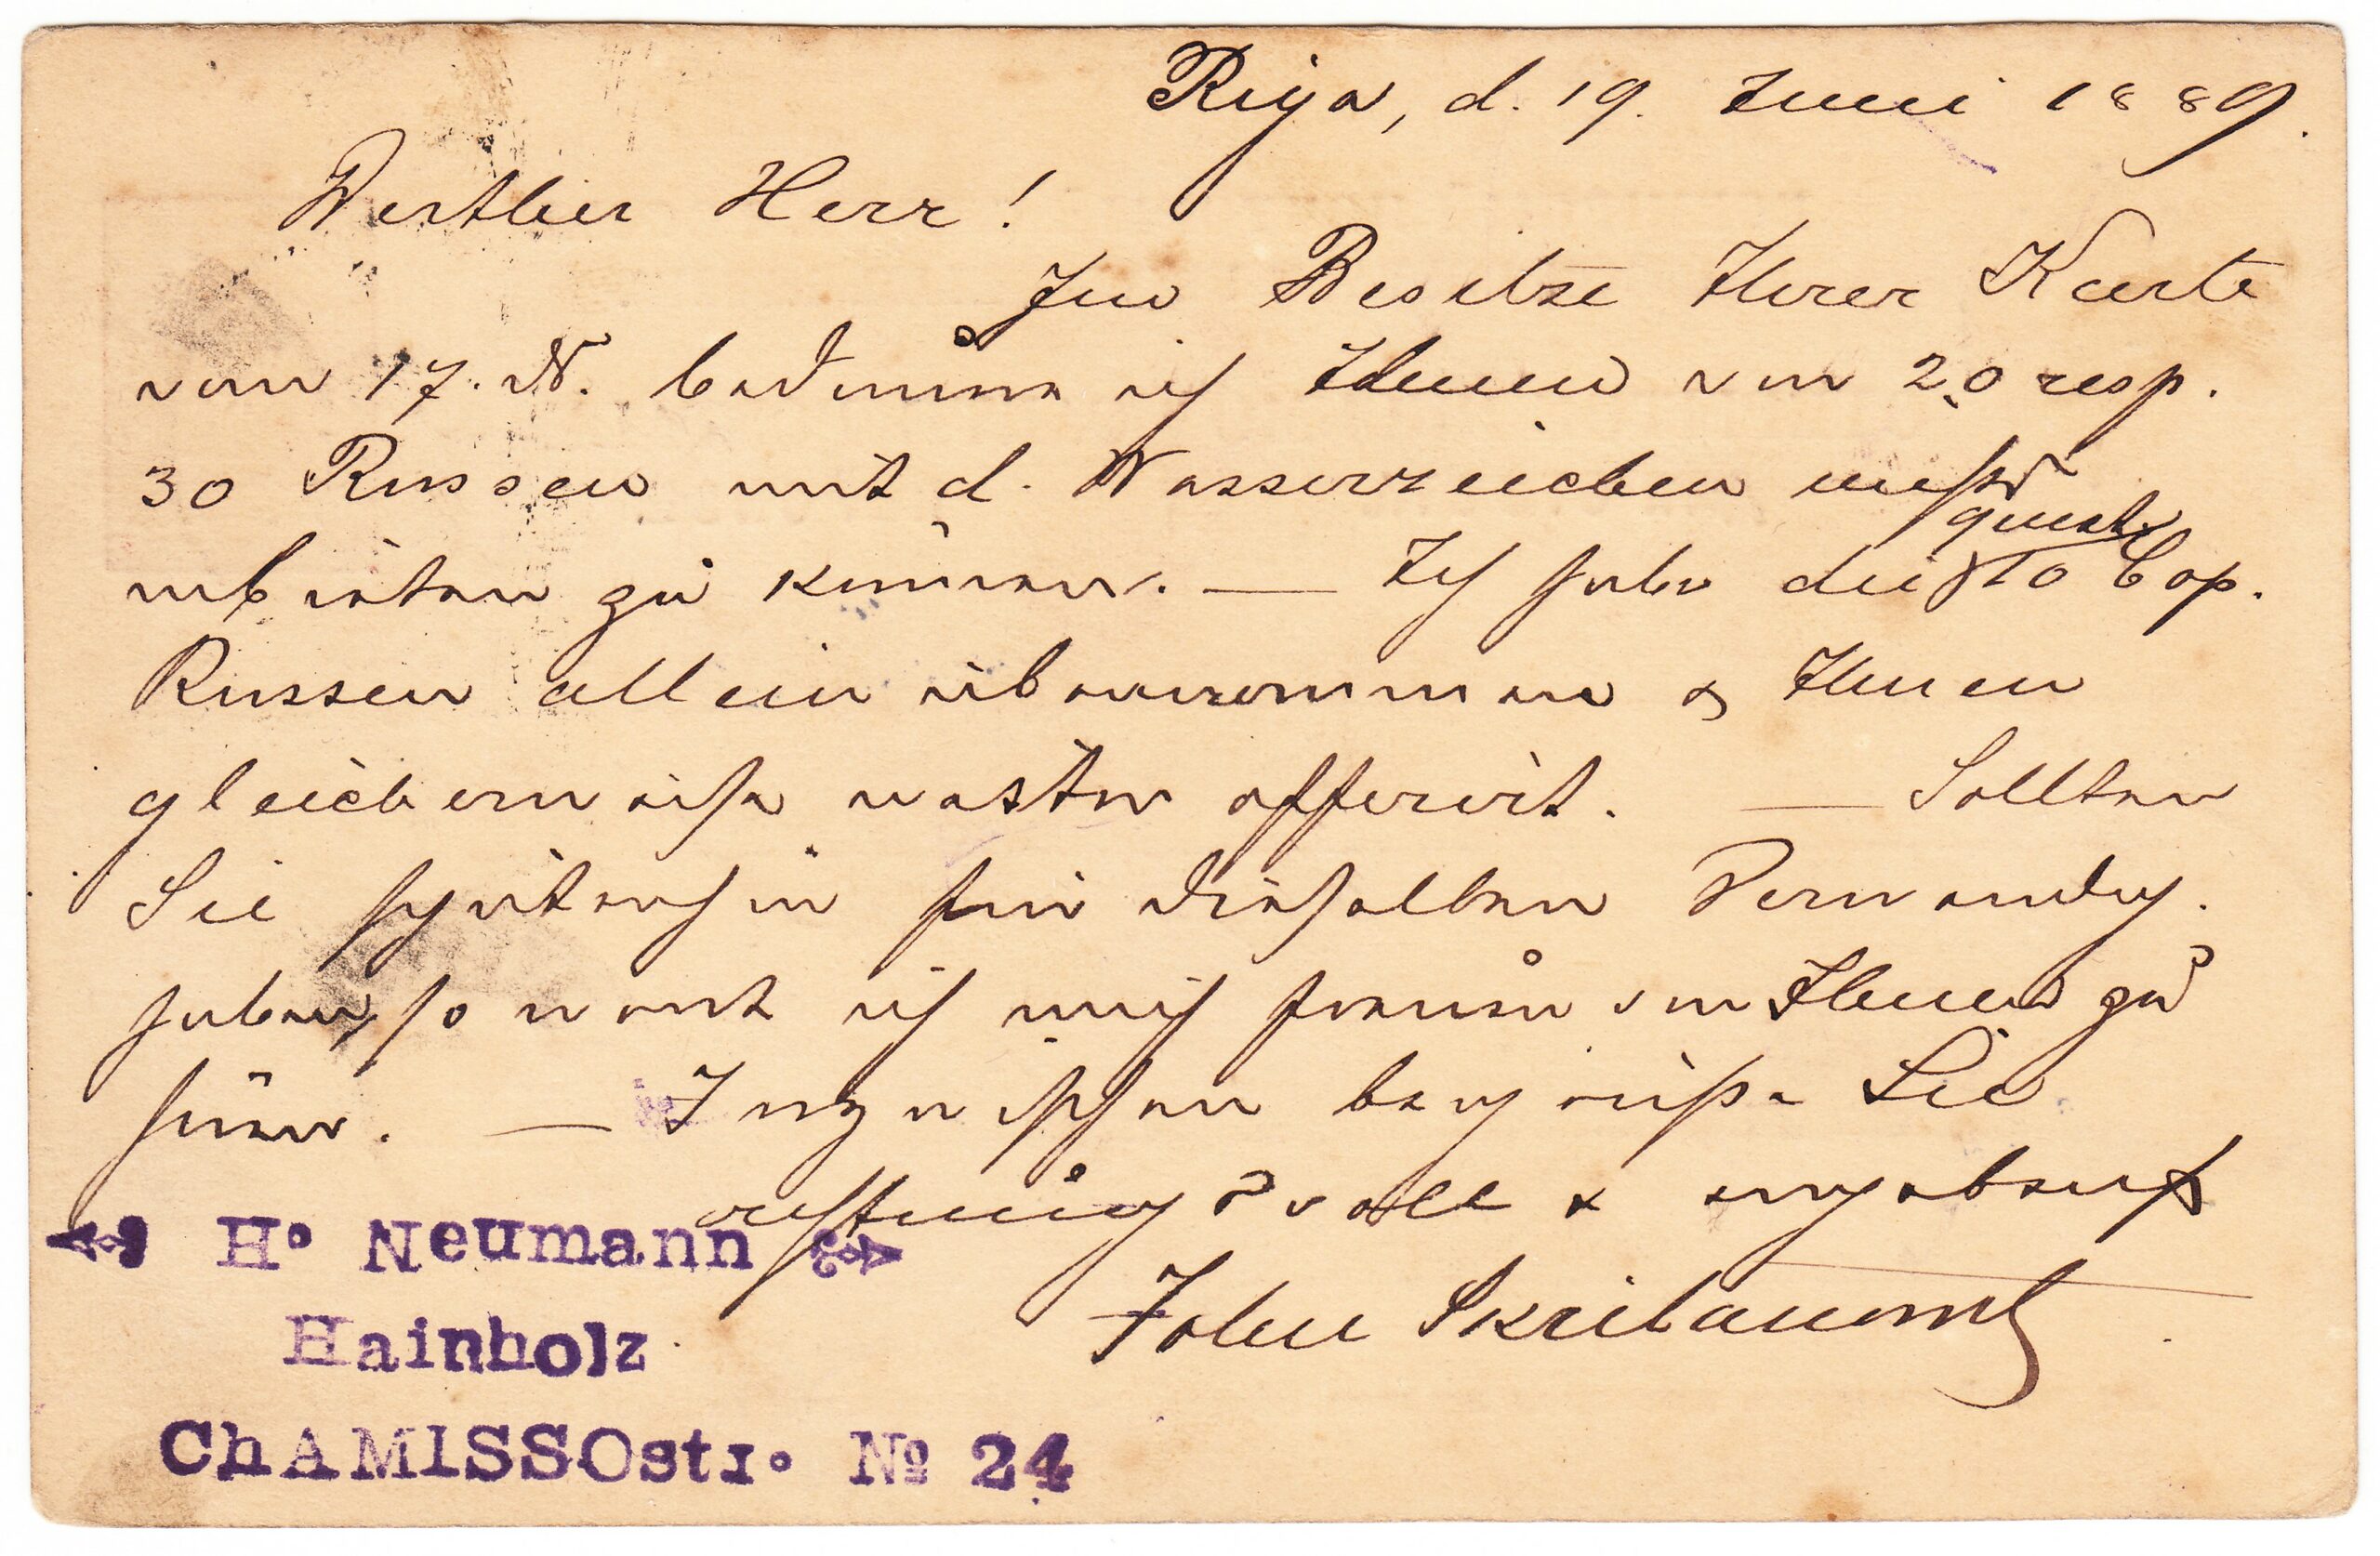 Riga, d. 19. Juni 1889.
Werther Herr!
Im Besitze Ihrer Karte
vom 17. d. bedaure ich Ihnen von 20 resp.
30 Russen mit d. Wasserzeichen nichts
anbieten zu können. — Ich habe die 10 Cop.
quest.
Russen allein übernommen & Ihnen
gleich offerirt. — Sollten
Sie späterhin für dieselben Verwendg.
haben, so werde ich mich freuen von Ihnen zu
hören. — Inzwischen begrüße Sie
achtungsvoll & ergebenst
John
H. Neumann
Hainholz
ChAMISSOstr. No 24